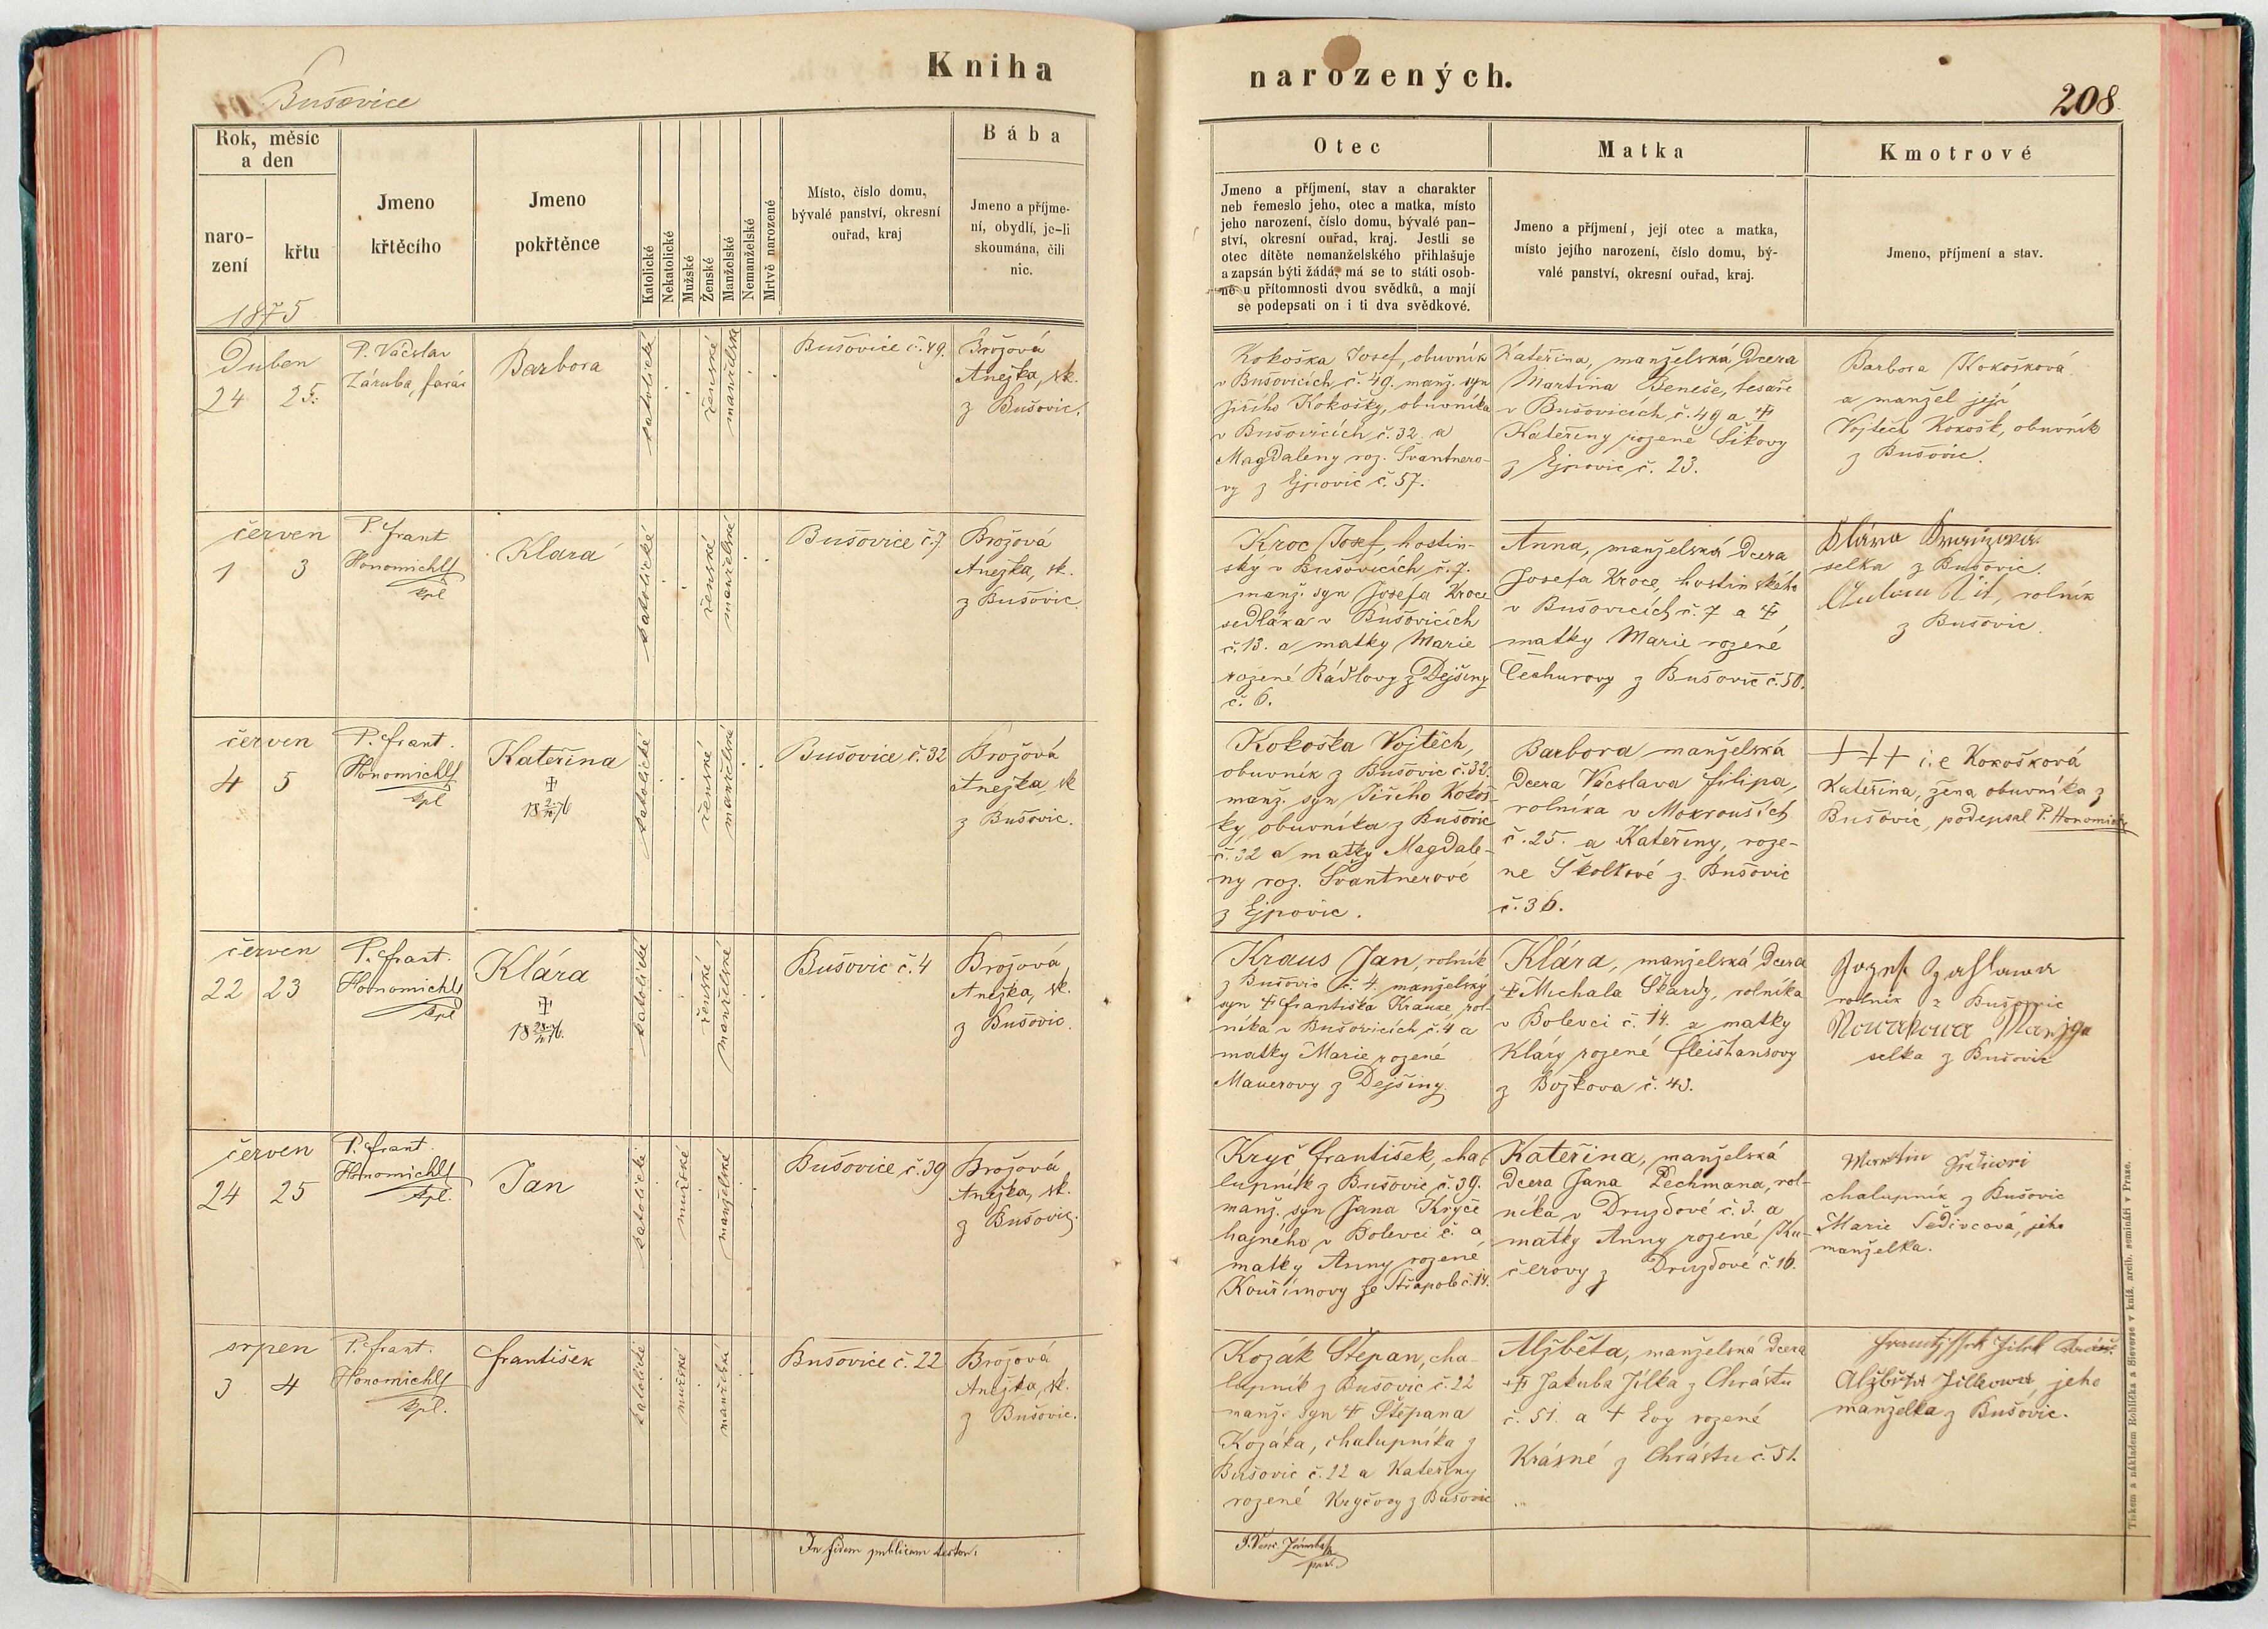 Bušovice
Kniha
Rok, měsíc
a den
naro-
zení
křtu
1875
Jmeno
křtěcího
Jmeno
pokřtěnce
Katolické
Nekatolické
Mužské
Ženské
Manželské
Nemanželské
Mrtvě narozené
Místo, číslo domu,
bývalé panství, okresní
ouřad, kraj
Bába
Jmeno a příjme-
ní, obydlí, je-li
skoumána, čili
nic.
Duben
24 25.
P. Václav
Záruba, farář
Barbora
katolické
ženské
manželské
Bušovice č. 49.
Brožová
Anežka, zk.
z Bušovic.
červen
1 3
P. Frant.
Honomichl
kpl
Klara
katolické
ženské
manželské
Bušovice č. 7.
Brožová
Anežka, zk.
z Bušovic.
červen
4 5
P. Frant.
Honomichl
kpl
Kateřina
katolické
ženské
manželské
Bušovice č. 32
Brožová
Anežka, zk
z Bušovic.
červen
22 23
P. Frant.
Honomichl
kpl
Klára
katolické
ženské
manželské
Bušovic č. 4
Brožová
Anežka, zk.
z Bušovic.
červen
24 25
P. Frant.
Honomichl
kpl.
Jan
katolické
mužské
manželské
Bušovice č. 39
Brožová
Anežka, zk.
z Bušovic.
srpen
3 4
P. Frant.
Honomichl
kpl.
František
katolické
mužské
manželské
Bušovice č. 22
Brožová
Anežka, zk.
z Bušovic.
In fidem publicam testor:
narozených.
208.
Otec
Jmeno a příjmení, stav a charakter
neb řemeslo jeho, otec a matka, místo
jeho narození, číslo domu, bývalé pan-
ství, okresní ouřad, kraj. Jestli se
otec dítěte nemanželského přihlašuje
a zapsán býti žádá, má se to státi osob-
ně u přítomnosti dvou svědků, a mají
se podepsati on i ti dva svědkové.
Matka
Jmeno a příjmení, její otec a matka,
místo jejího narození, číslo domu, bý-
valé panství, okresní ouřad, kraj.
Kmotrové
Jmeno, příjmení a stav.
Kokoška Josef, obuvník
v Bušovicích č. 49. manž. syn
Jiřího Kokošky, obuvníka
v Bušovicích č. 32. a
Magdaleny roz. Švantnero-
vy z Ejpovic č. 57.
Kateřina, manželská dcera
Martina Beneše, tesaře
v Bušovicích č. 49 a ‡
Kateřiny rozené Šikovy
z Ejpovic č. 23.
Barbora Kokošková
a manžel její
Vojtěch Kokošk, obuvník
z Bušovic.
Kroc Josef, hostin-
ský v Bušovicích č. 7.
manž. syn Josefa Kroce
sedláka v Bušovicích
č. 13. a matky Marie
rozené Rádlovy z Dejšiny
č. 6.
Anna, manželská dcera
Josefa Kroce, hostinského
v Bušovicích č. 7 a ‡
matky Marie rozené
Čechurovy z Bušovic č. 50.
Klára
selka z Bušovic.
rolník
z Bušovic.
Kokoška Vojtěch,
obuvník z Bušovic č. 32.
manž. syn Jiřího Kokoš-
ky, obuvníka z Bušovic
č. 32 a matky Magdale-
ny roz. Švantnerové
z Ejpovic.
Barbora manželská
dcera Václava Filipa,
rolníka v Mokrouších
č. 25. a Kateřiny, roze-
né Školkové z Bušovic
č. 36.
+++ i.e Kokošková
Kateřina, žena obuvníka z
Bušovic, podepsal P. Honomichl
Kraus Jan, rolník
z Bušovic č. 4. manželský
syn ‡ Františka Krause, rol-
níka v Bušovicích č. 4 a
matky Marie rozené
Mauerovy z Dejšiny
Klára, manželská dcera
‡ Michala Škardy, rolníka
v Bolevci č. 14. a matky
Kláry rozené Fleišhansovy
z Božkova č. 43.
Jozef
rolník z Bušovic
Nowakowa Maryga
selka z Bušovic
Kryč František, cha-
lupník z Bušovic č. 39.
manž. syn Jana Kryče
hajného v Bolevci č. a
matky Anny rozené
Kouřimovy ze Třapole č. 14.
Kateřina, manželská
dcera Jana Pechmana, rol-
níka v Druzdové č. 3. a
matky Anny rozené Ku-
čerovy z Druzdové č. 16.
Martin
chalupník z Bušovic
Marie Šedivcová, jeho
manželka.
Kozák Štěpan, cha-
lupník z Bušovic č. 22
manž. syn ‡ Štěpana
Kozáka, chalupníka z
Bušovic č. 22 a Kateřiny
rozené Kryčovy z Bušovic
Alžběta, manželská dcera
‡ Jakuba Jílka z Chrástu
č. 51. a + Evy rozené
Krásné z Chrástu č. 51.
Frantisek Jilek
Alžběta Jilkowa, jeho
manželka z Bušovic.
Tiskem a nákladem Rohlíčka a Sieverse v kníž. arcib. semináři v Praze.